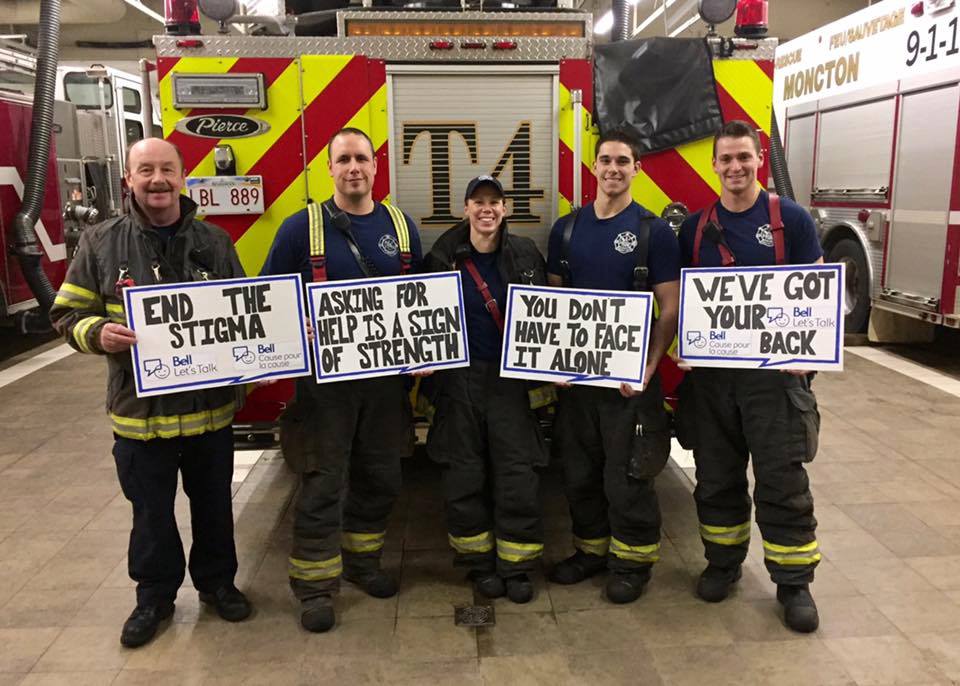 RESCUE FEU/SAUVETAGE
9-1-1
MONCTON
Pierce
LBL 889
T4
END THE
STIGMA
Bell
Let'sTalk
Bell
Cause pour
la cause
ASKING FOR
HELP IS A SIGN
OF STRENGTH
YOU DON'T
HAVE TO FACE
IT ALONE
WE'VE GOT
YOUR
BACK
Bell
Let'sTalk
Bell
Cause pour
la cause